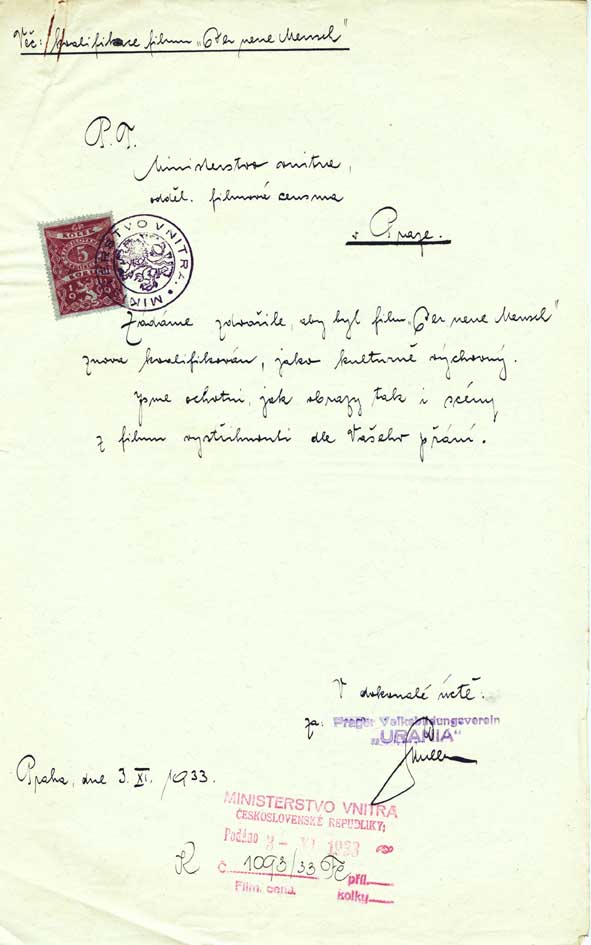 Věc: kvalifikace filmu „Der neue Mensch"
P. T.
Ministerstvo vnitra,
odděl. filmová censura
v Praze.
KOLEK
5
MINISTERSTVO VNITRA
Žádáme zdvořile, aby byl film „Der neue Mensch"
znova kvalifikován, jako kulturně výchovný.
Jsme ochotni, jak obrazy tak i scény
z filmu vystřihnouti dle Vašeho přání.
V dokonalé úctě:
za: Prager Volksbildungsverein
„URANIA"
Praha, dne 3. XI. 1933.
MINISTERSTVO VNITRA
ČESKOSLOVENSKÉ REPUBLIKY;
Podáno 3 - XI 1933
K č. 1093/33 Fc příl.
Film. cens. kolky.